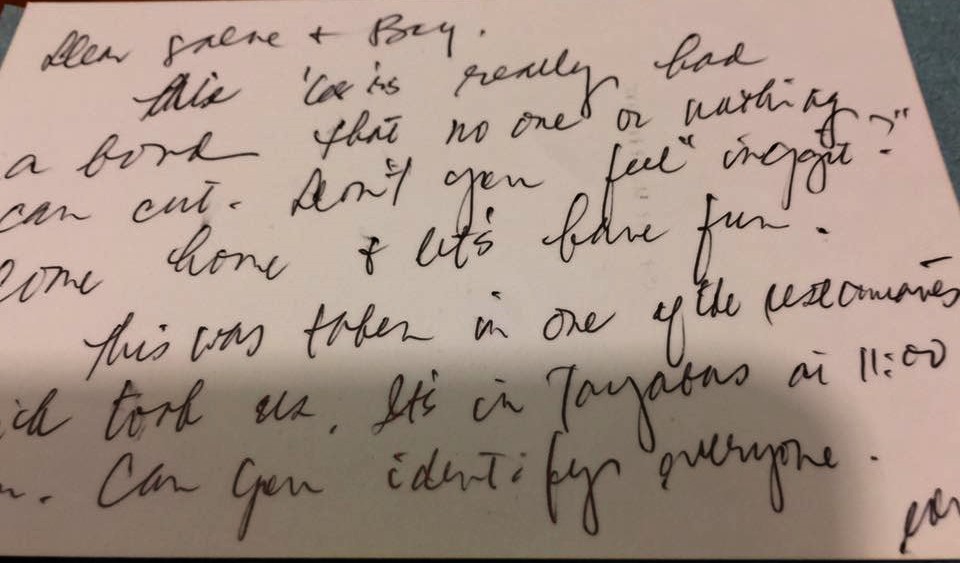 Dear + Bey.
this is really bad
a bond that no one or nothing
can cut. Don't you feel "inggit?"
Come home & let's have fun.
This was taken in one of the
ick took us. It's in Tayabas at 11:00
Can you identify everyone.